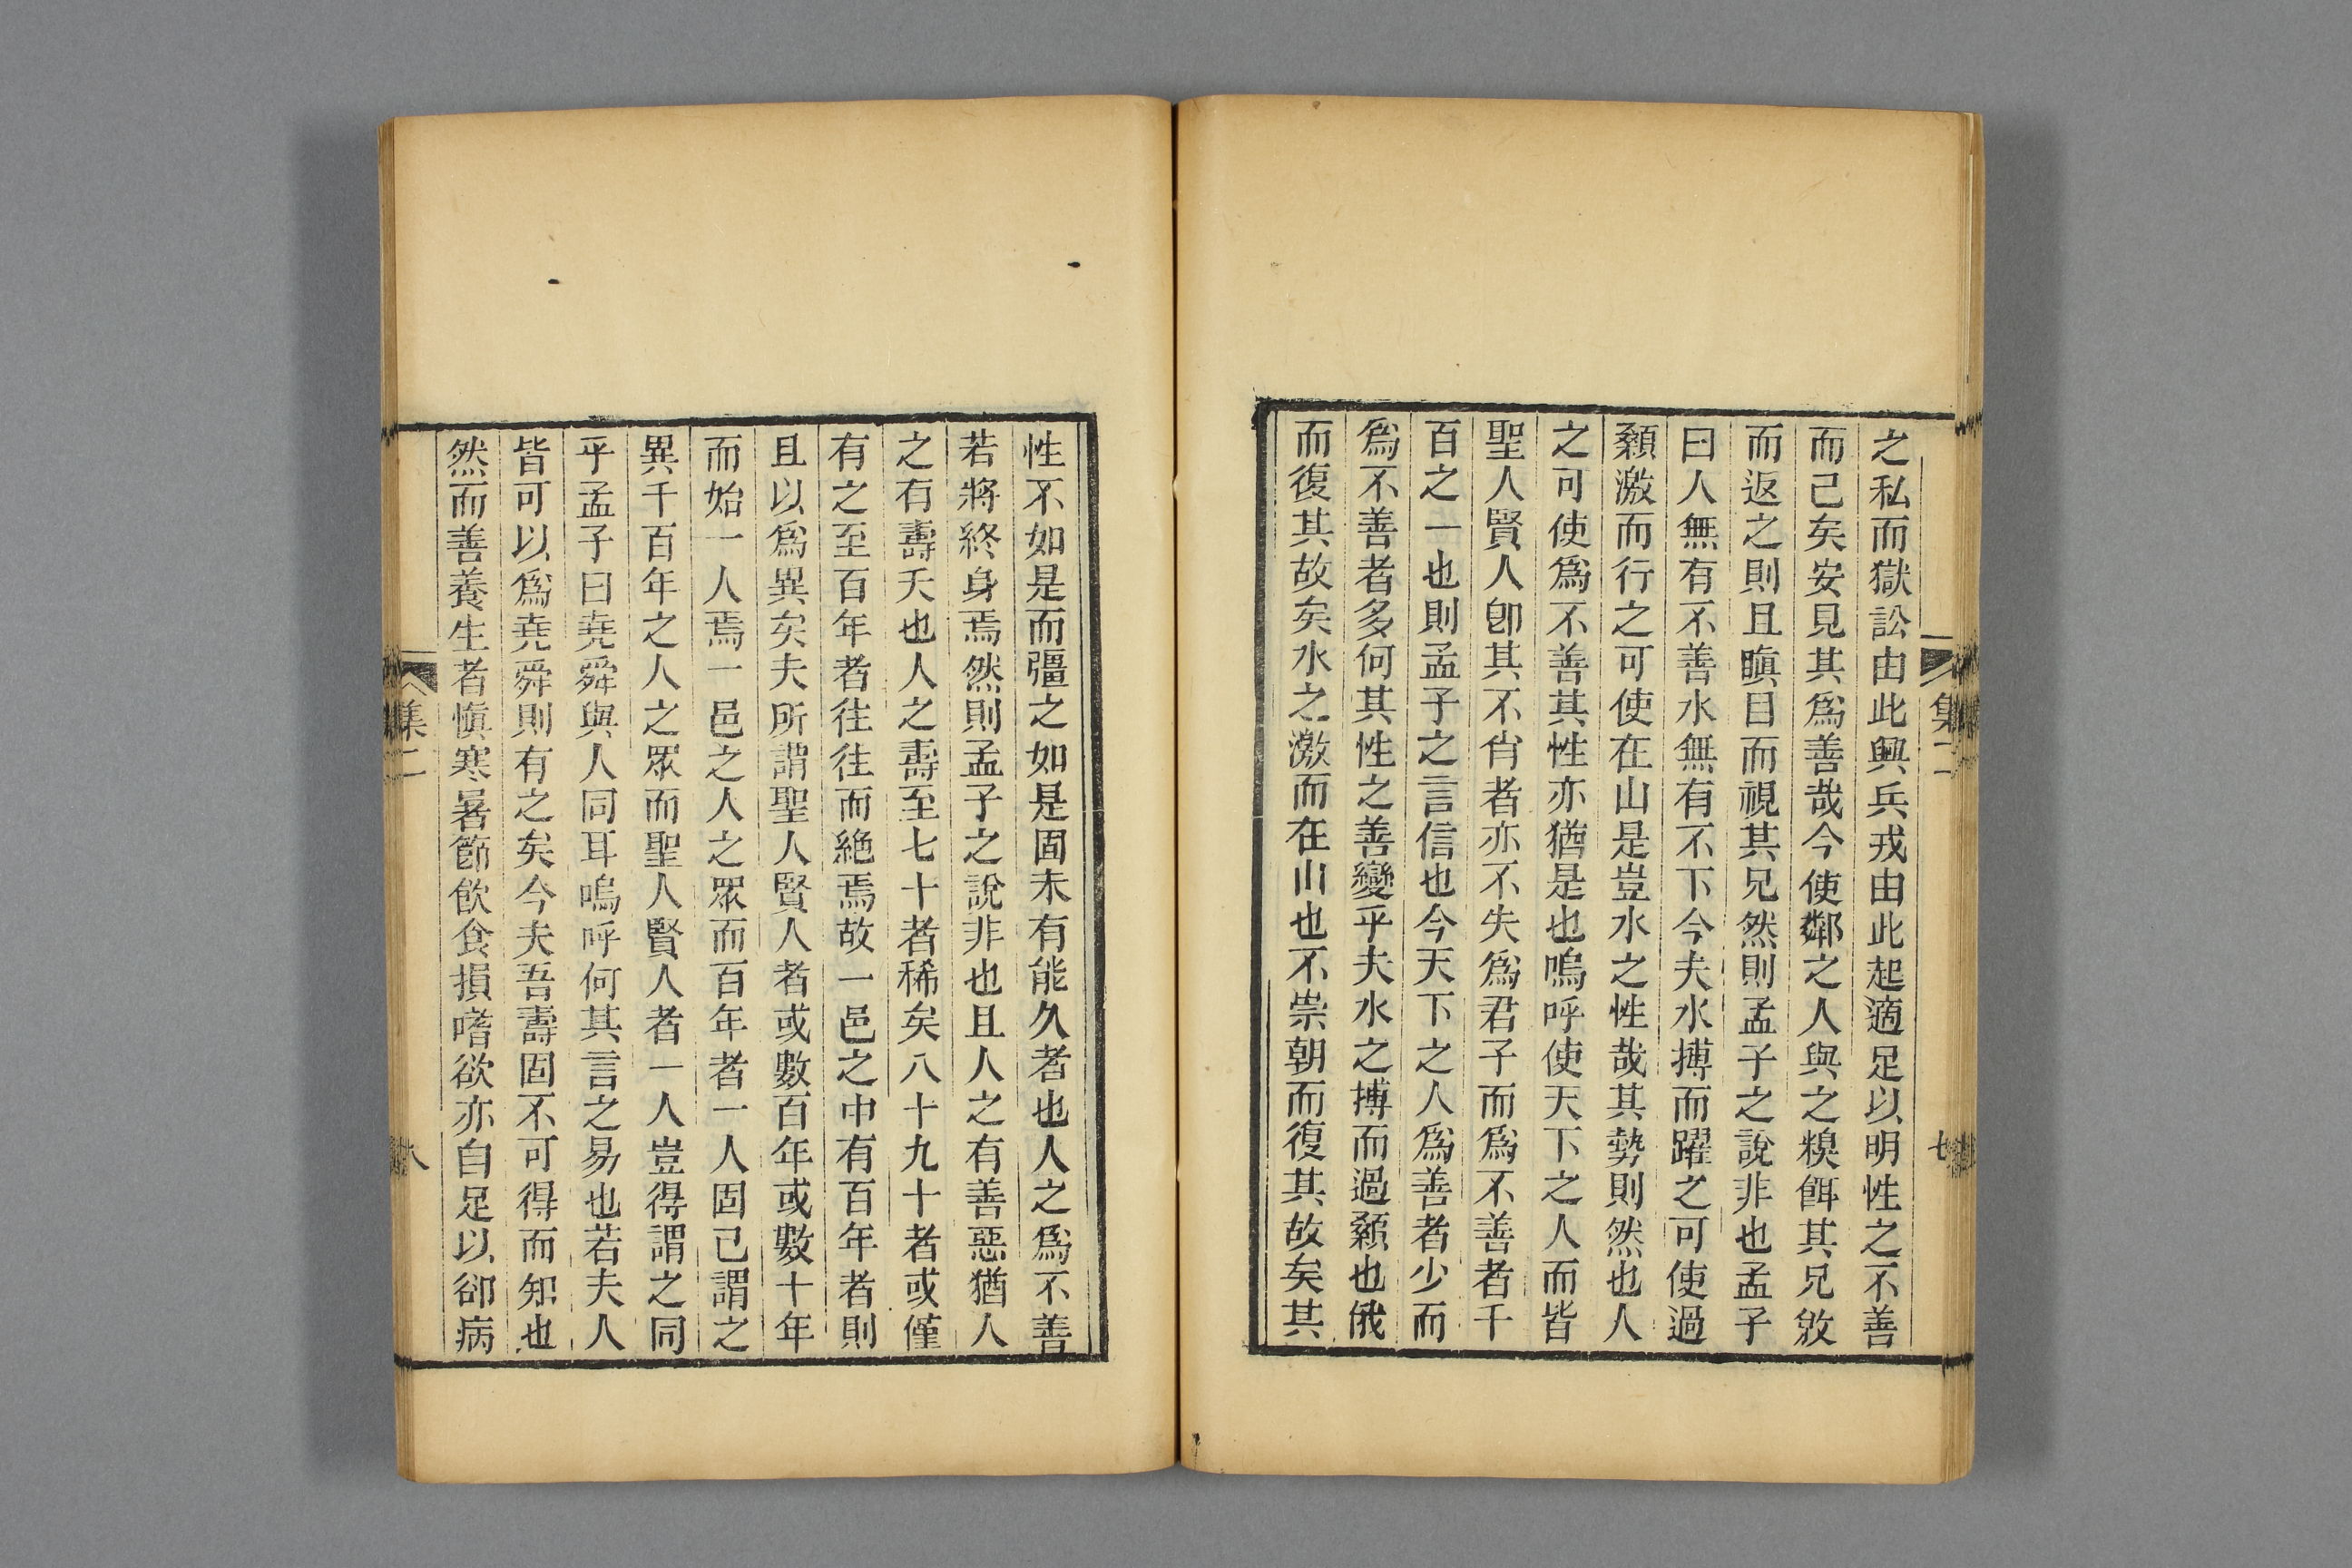 之私而獄訟由此興兵戎由此起適足以明性之不善
而己矣安見其爲善哉今使鄰之人與之糗餌其兄敓
而返之則且瞋目而視其兄然則孟子之說非也孟子
曰人無有不善水無有不下今夫水搏而躍之可使過
顙激而行之可使在山是豈水之性哉其勢則然也人
之可使爲不善其性亦猶是也嗚呼使天下之人而皆
聖人賢人卽其不肖者亦不失爲君子而爲不善者千
百之一也則孟子之言信也今天下之人爲善者少而
爲不善者多何其性之善變乎夫水之搏而過顙也俄
而復其故矣水之激而在山也不崇朝而復其故矣其
集二
七
性不如是而彊之如是固未有能久者也人之爲不善
若將終身焉然則孟子之說非也且人之有善惡猶人
之有壽夭也人之壽至七十者稀矣八十九十者或僅
有之至百年者往往而絶焉故一邑之中有百年者則
且以爲異矣夫所謂聖人賢人者或數百年或數十年
而始一人焉一邑之人之眾而百年者一人固己謂之
異千百年之人之眾而聖人賢人者一人豈得謂之同
乎孟子曰堯舜與人同耳嗚呼何其言之易也若夫人
皆可以爲堯舜則有之矣今夫吾壽固不可得而知也
然而善養生者愼寒暑節飲食損嗜欲亦自足以卻病
集二
八